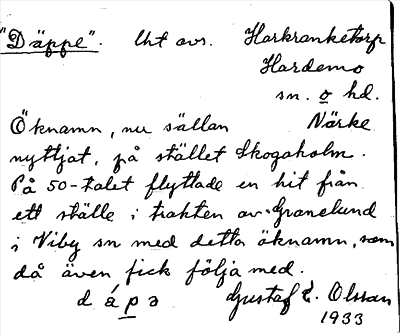 "Däppe". Utt avs. Harkranketorp
Hardemo
sn. o hd.
Öknamn, nu sällan Närke
nyttjat, på stället Skogaholm.
På 50-talet flyttade en hit från
ett ställe i trakten av Granelund
i Viby sn med detta öknamn, som
då även fick följa med.
d á p ə Gustaf E. Olssan
1933